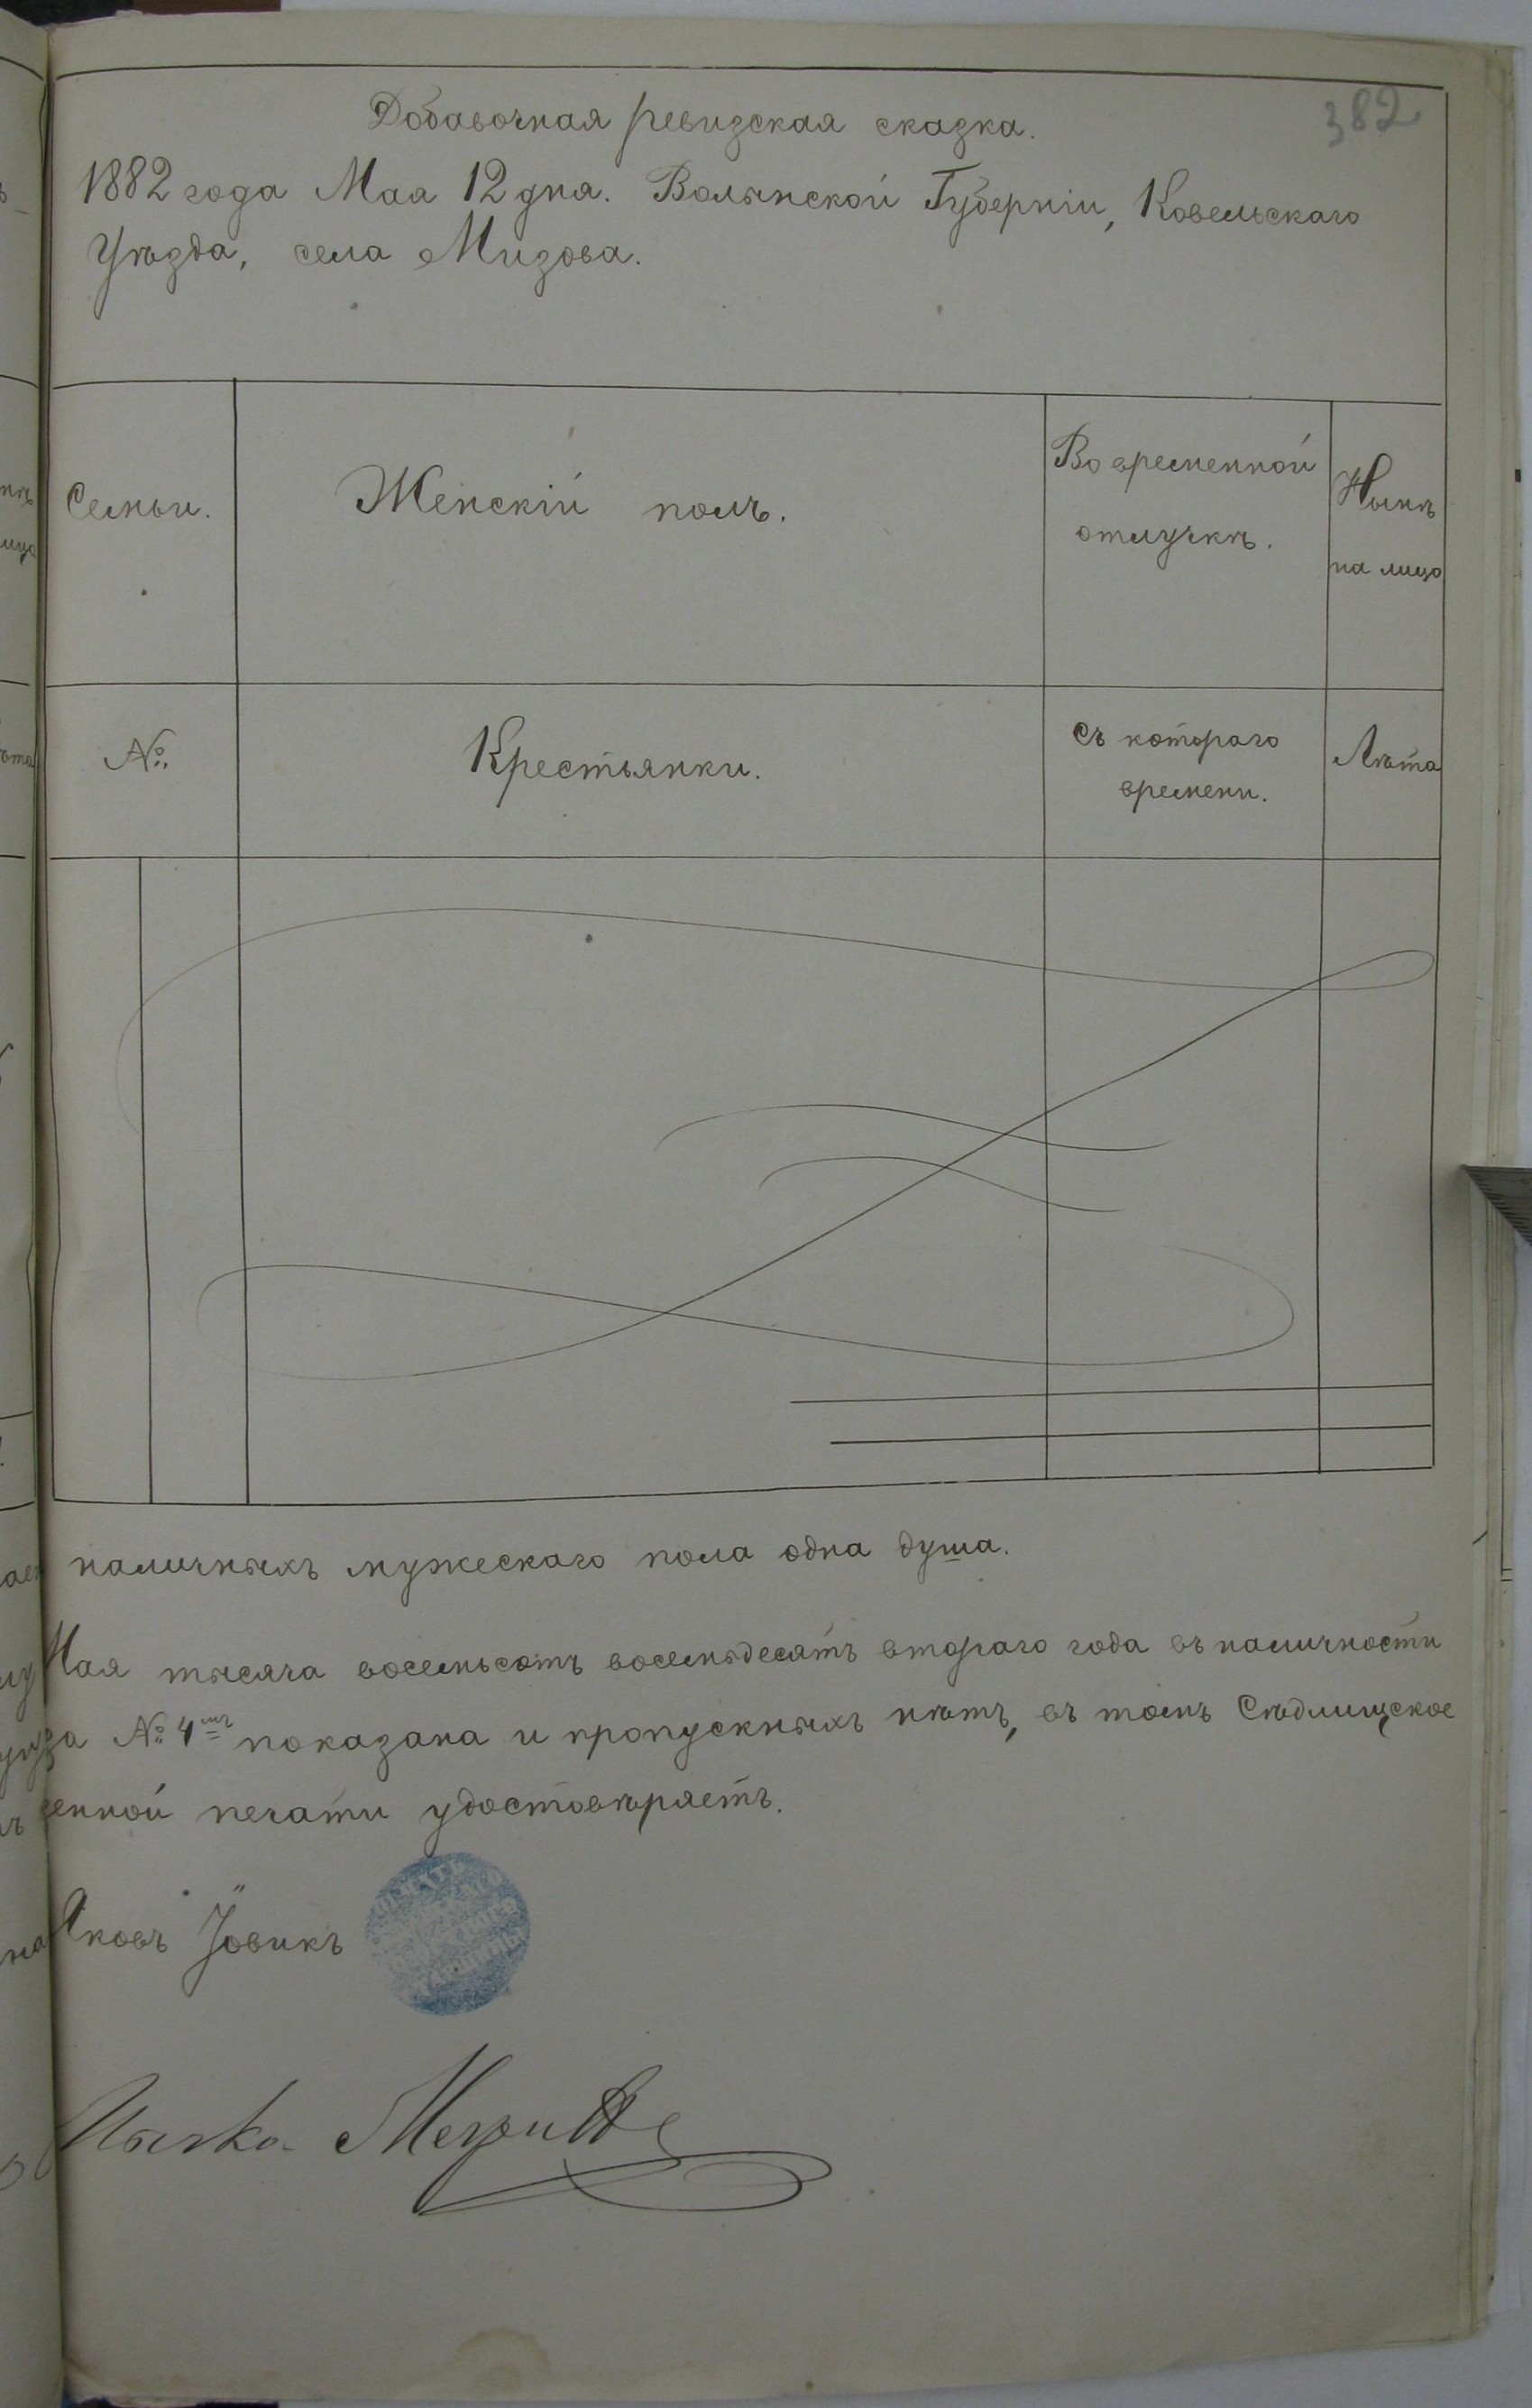 382
Добавочная ревизская сказка.
1882 года Мая 12 дня. Волынской Губерніи, Ковельскаго
Уѣзда, села Мизова.
Семьи.
Женскій полъ.
Во временной
отлучкѣ.
Нынѣ
на лицо
№.
Крестьянки.
Съ котораго
времени.
Лѣта
наличныхъ мужескаго пола одна душа.
Мая тысяча восемьсотъ восемьдесятъ втораго года въ наличности
за № 4мъ показана и пропускныхъ нѣтъ, въ томъ Сѣдлищское
енной печати удостовѣряетъ.
Яковъ Йовикъ